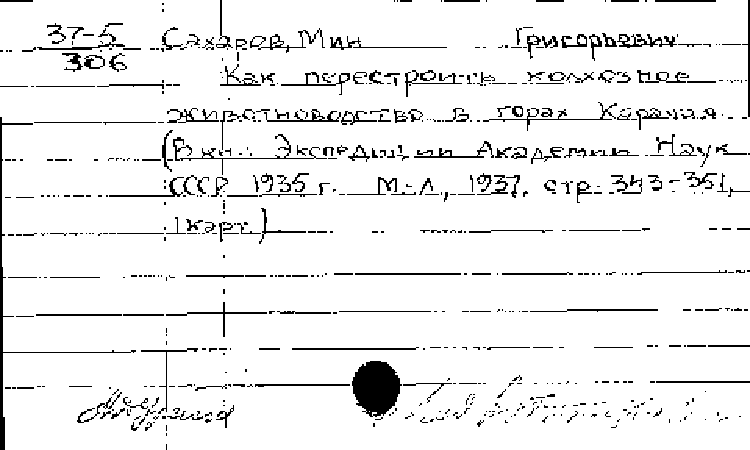 37-5 Сахаров, Мин Григорьевич
306
Как перестроить колхозное
животноводство в горах Карачая
(В кн.: Экспедиции Академии Наук
СССР 1935 г. М.-Л., 1937. стр. 343-351,
1 карт.)